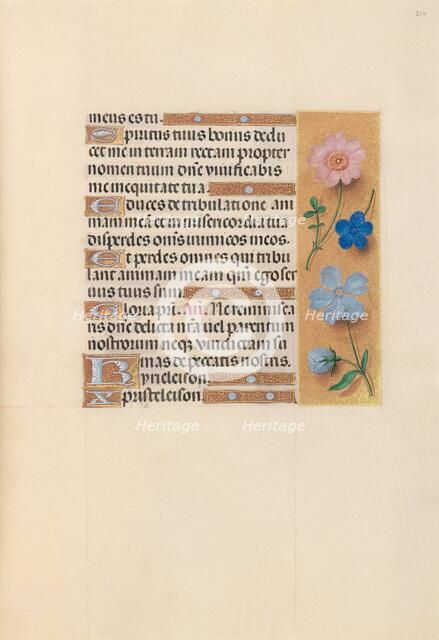 meus es tu.
Spiritus tuus bonus dedu
cet me in terram rectam propter
nomen tuum dñe vivificabis
me in equitate tua.
Educes de tribulatione ani
mam meam et in misericordia tua
disperdes om̄s inimicos meos.
Et perdes omnes qui tribu
lant animam meam qm̄ ego ser
uus tuus sum.
Gloria pri. añ. Ne reminisca
ris dñe delicta nr̄a vel parentum
nostrorum neqꝫ vindictam su
mas de peccatis nostris.
Kyrieleison.
Xpristeleison.
Heritage
Heritage
Heritage
Heritage
Heritage
Heritage
Heritage
Heritage